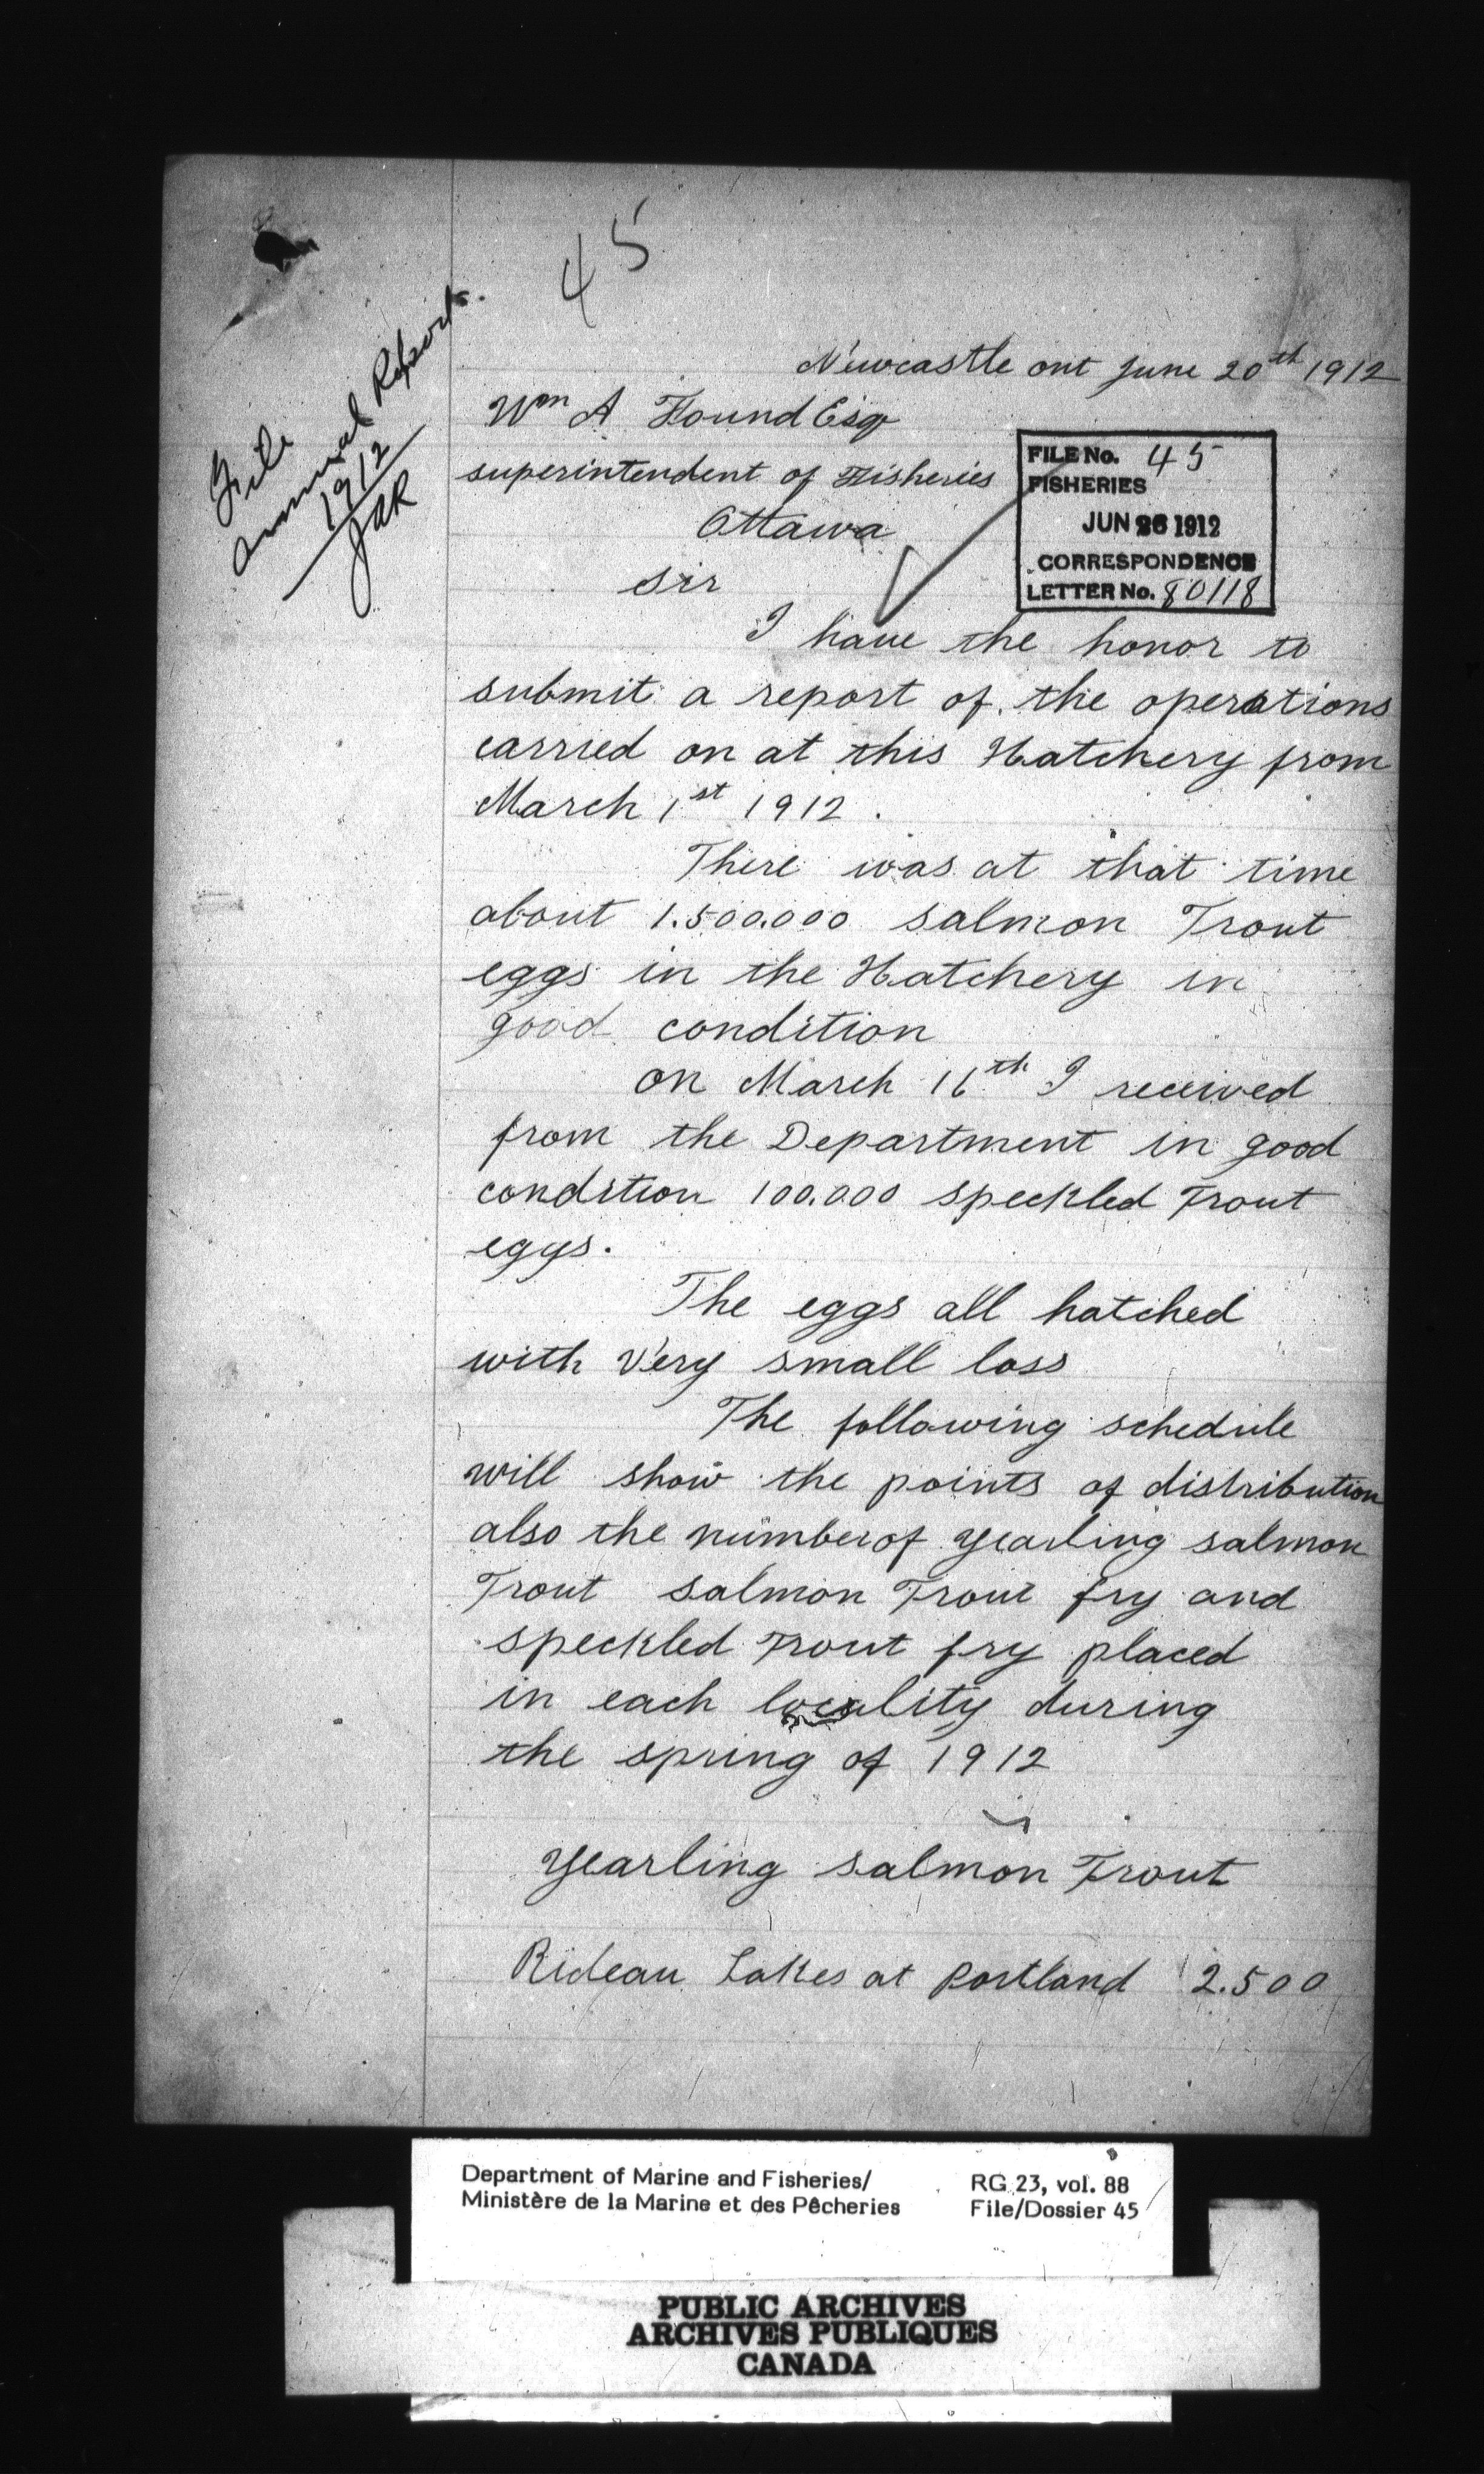 45
File
Annual Report.
1912
JAR
Newcastle ont June 20th 1912
Wm A Found Esq
superintendent of Fisheries
Ottawa
sir
FILE No. 45
FISHERIES
JUN 26 1912
CORRESPONDENCE
LETTER No. 80118
I have the honor to
submit a report of the operations
carried on at this Hatchery from
March 1st 1912.
There was at that time
about 1.500.000 salmon Trout
eggs in the Hatchery in
good condition
on March 16th I received
from the Department in good
condition 100.000 speckled Trout
eggs.
The eggs all hatched
with very small loss
The following schedule
will show the points of distribution
also the number of yearling salmon
Trout salmon Trout fry and
speckled Trout fry placed
in each locality during
the spring of 1912
Yearling salmon Trout
Rideau Lakes at Portland 2.500
Department of Marine and Fisheries/
Ministère de la Marine et des Pêcheries
RG 23, vol. 88
File/Dossier 45
PUBLIC ARCHIVES
ARCHIVES PUBLIQUES
CANADA